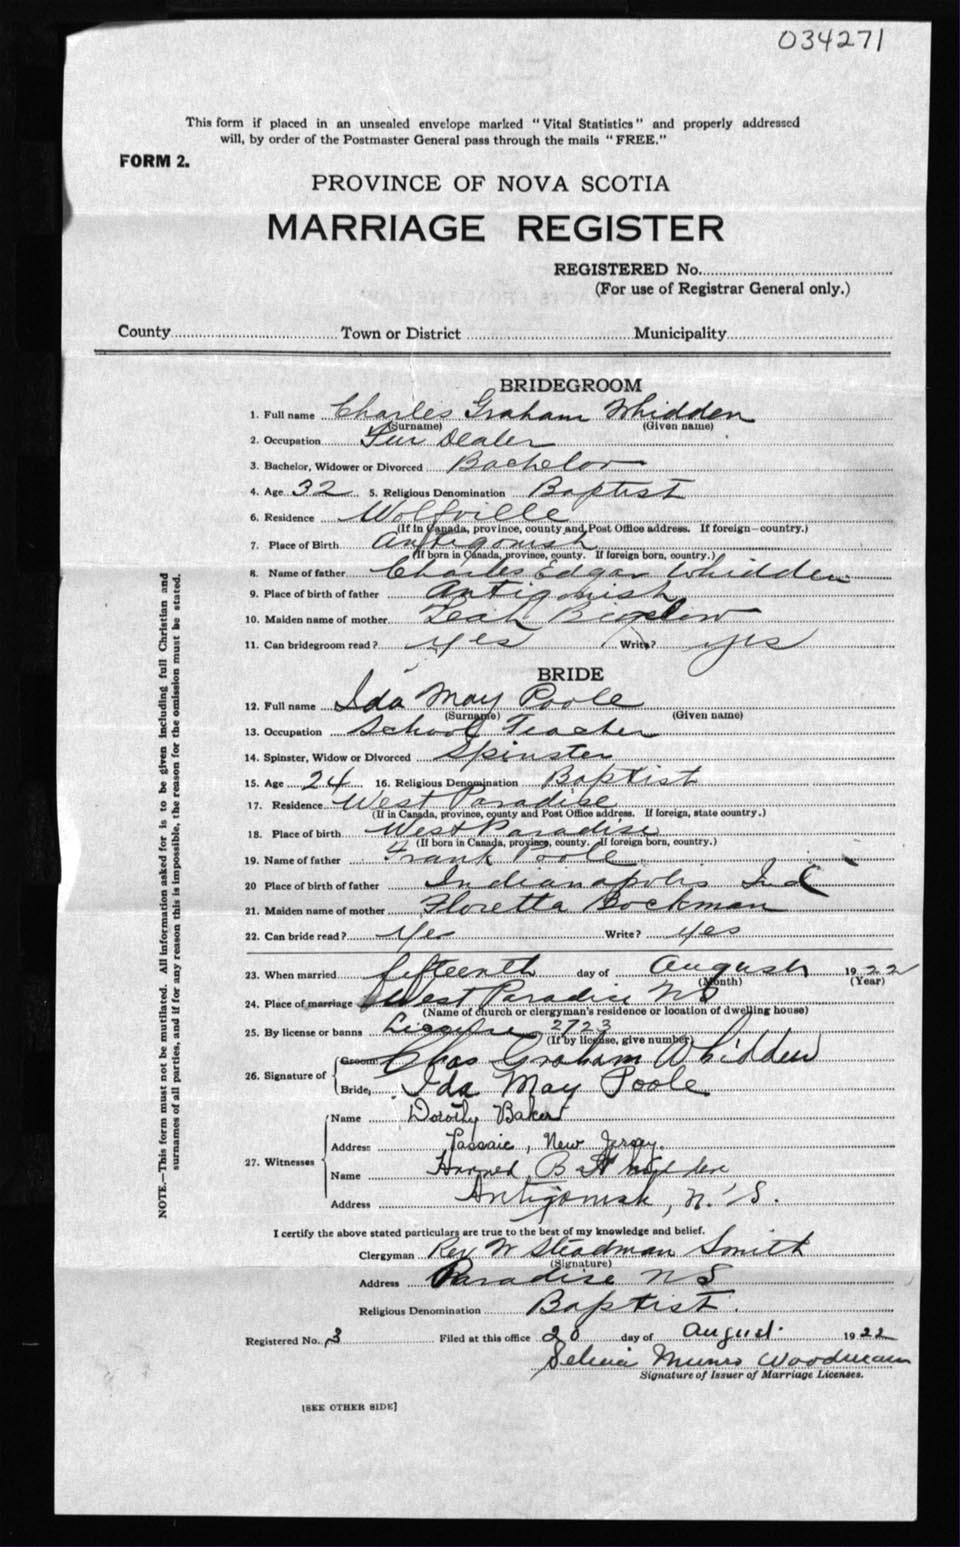 034271
This form if placed in an unsealed envelope marked "Vital Statistics" and properly addressed
will, by order of the Postmaster General pass through the mails "FREE."
FORM 2.
PROVINCE OF NOVA SCOTIA
MARRIAGE REGISTER
REGISTERED No.
(For use of Registrar General only.)
County Town or District Municipality
BRIDEGROOM
1. Full name Charles Graham Whidden
(Surname) (Given name)
2. Occupation Fur Dealer
3. Bachelor, Widower or Divorced Bachelor
4. Age 32 5. Religious Denomination Baptist
6. Residence Wolfville
(If in Canada, province, county and Post Office address. If foreign—country.)
7. Place of Birth Antigonish
(If born in Canada, province, county. If foreign born, country.)
8. Name of father Charles Edgar Whidden
9. Place of birth of father Antigonish
10. Maiden name of mother Leah Bigelow
11. Can bridegroom read? yes Write? yes
BRIDE
12. Full name Ida May Poole
(Surname) (Given name)
13. Occupation School Teacher
14. Spinster, Widow or Divorced Spinster
15. Age 24 16. Religious Denomination Baptist
17. Residence West Paradise
(If in Canada, province, county and Post Office address. If foreign, state country.)
18. Place of birth West Paradise
(If born in Canada, province, county. If foreign born, country.)
19. Name of father Frank Poole
20 Place of birth of father Indianapolis Ind
21. Maiden name of mother Floretta Bockman
22. Can bride read? Yes Write? yes
23. When married fifteenth day of August 1922
(Month) (Year)
24. Place of marriage West Paradise NS
(Name of church or clergyman's residence or location of dwelling house)
25. By license or banns License 2723
(If by license, give number)
26. Signature of Groom Chas Graham Whidden
Bride, Ida May Poole
27. Witnesses Name Dorothy Baker
Address Passaic, New Jersey.
Name B Whidden
Address Antigonish, N.S.
I certify the above stated particulars are true to the best of my knowledge and belief.
Clergyman Rev W Steadman Smith
(Signature)
Address Paradise NS
Religious Denomination Baptist.
Registered No. 3 Filed at this office 20 day of August 1922
Selena Munro Woodman
Signature of Issuer of Marriage Licenses.
[SEE OTHER SIDE]
NOTE.—This form must not be mutilated. All information asked for is to be given including full Christian and
surnames of all parties, and if for any reason this is impossible, the reason for the omission must be stated.